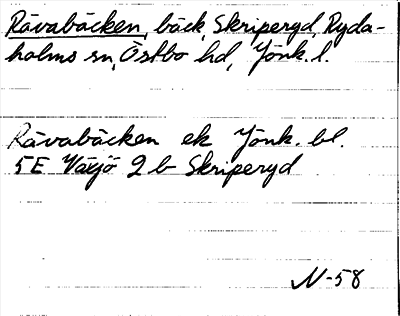 Rävabäcken, bäck, Skriperyd, Ryda-
holms sn, Östbo hd, Jönk. l.
Rävabäcken ek Jönk. bl.
5E Växjö 2 b Skriperyd
N-58